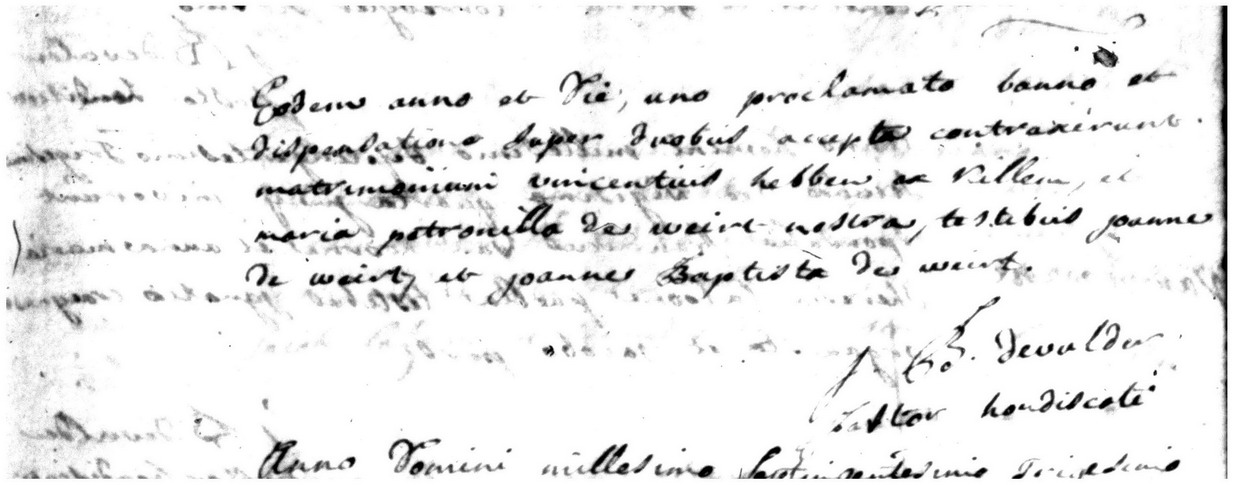 Eodem anno et die, uno proclamato banno et
dispensatione super duobus accepta contraxerunt
matrimonium vincentius hebben ex Killem, et
maria petronilla de weirt nostra, testibus joanne
de weirt, et joannes Baptista de weirt.
J. B. devulder
Pastor hondiscoti
Anno Domini millesimo Septingentesimo Trigesimo